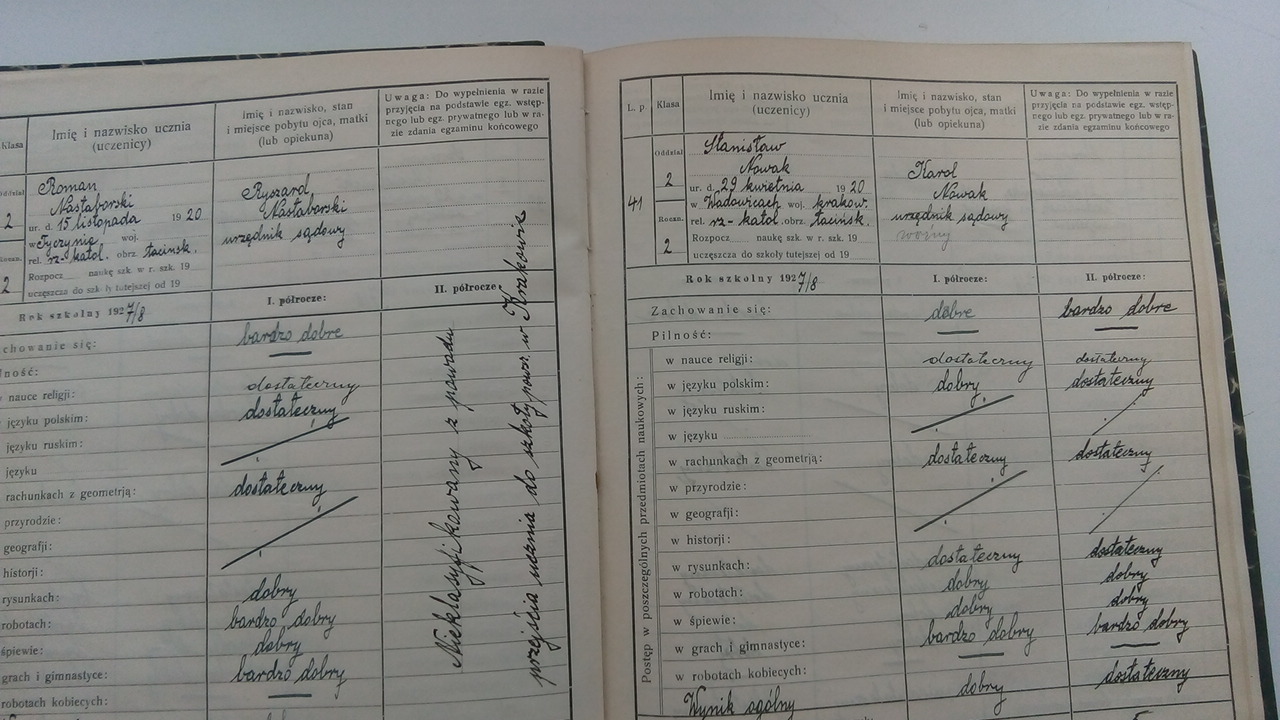 Klasa
Imię i nazwisko ucznia
(uczenicy)
Imię i nazwisko, stan
i miejsce pobytu ojca, matki
(lub opiekuna)
Uwaga: Do wypełnienia w razie
przyjęcia na podstawie egz. wstęp-
nego lub egz. prywatnego lub w ra-
zie zdania egzaminu końcowego
Oddział
2
Roczn.
2
Roman
Nastaborski
ur. d. 15 listopada 1920
w Tyczynie woj.
rel. rz-katol. obrz. łacińsk.
Rozpocz naukę szk. w r. szk. 19
uczęszcza do szkoły tutejszej od 19
Ryszard
Nastaborski
urzędnik sądowy
Rok szkolny 1927/8
I. półrocze:
II. półrocze
chowanie się:
bardzo dobre
lność:
nauce religji:
dostateczny
języku polskim:
dostateczny
języku ruskim:
języku
rachunkach z geometrją:
dostateczny
przyrodzie:
geografji:
historji:
rysunkach:
dobry
robotach:
bardzo dobry
śpiewie:
dobry
grach i gimnastyce:
bardzo dobry
robotach kobiecych:
Nieklasyfikowany z powodu
przejścia ucznia do szkoły powsz. w Krakowie
L. p
Klasa
Imię i nazwisko ucznia
(uczenicy)
Imię i nazwisko, stan
i miejsce pobytu ojca, matki
(lub opiekuna)
Uwaga: Do wypełnienia w razie
przyjęcia na podstawie egz. wstęp-
nego lub egz. prywatnego lub w ra-
zie zdania egzaminu końcowego
41
Oddział
2
Roczn.
2
Stanisław
Nowak
ur. d. 29 kwietnia 1920
w Wadowicach woj. krakow.
rel. rz-katol. obrz. łacińsk.
Rozpocz naukę szk. w r. szk. 19
uczęszcza do szkoły tutejszej od 19
Karol
Nowak
urzędnik sądowy
woźny
Rok szkolny 1927/8
I. półrocze:
II. półrocze:
Zachowanie się:
dobre
bardzo dobre
Pilność:
Postęp w poszczególnych przedmiotach naukowych:
w nauce religji:
dostateczny
dostateczny
w języku polskim:
dobry
dostateczny
w języku ruskim:
w języku
w rachunkach z geometrją:
dostateczny
dostateczny
w przyrodzie:
w geografji:
w historji:
w rysunkach:
dostateczny
dostateczny
w robotach:
dobry
dobry
w śpiewie:
dobry
dobry
w grach i gimnastyce:
bardzo dobry
bardzo dobry
w robotach kobiecych:
Wynik ogólny
dobry
dostateczny